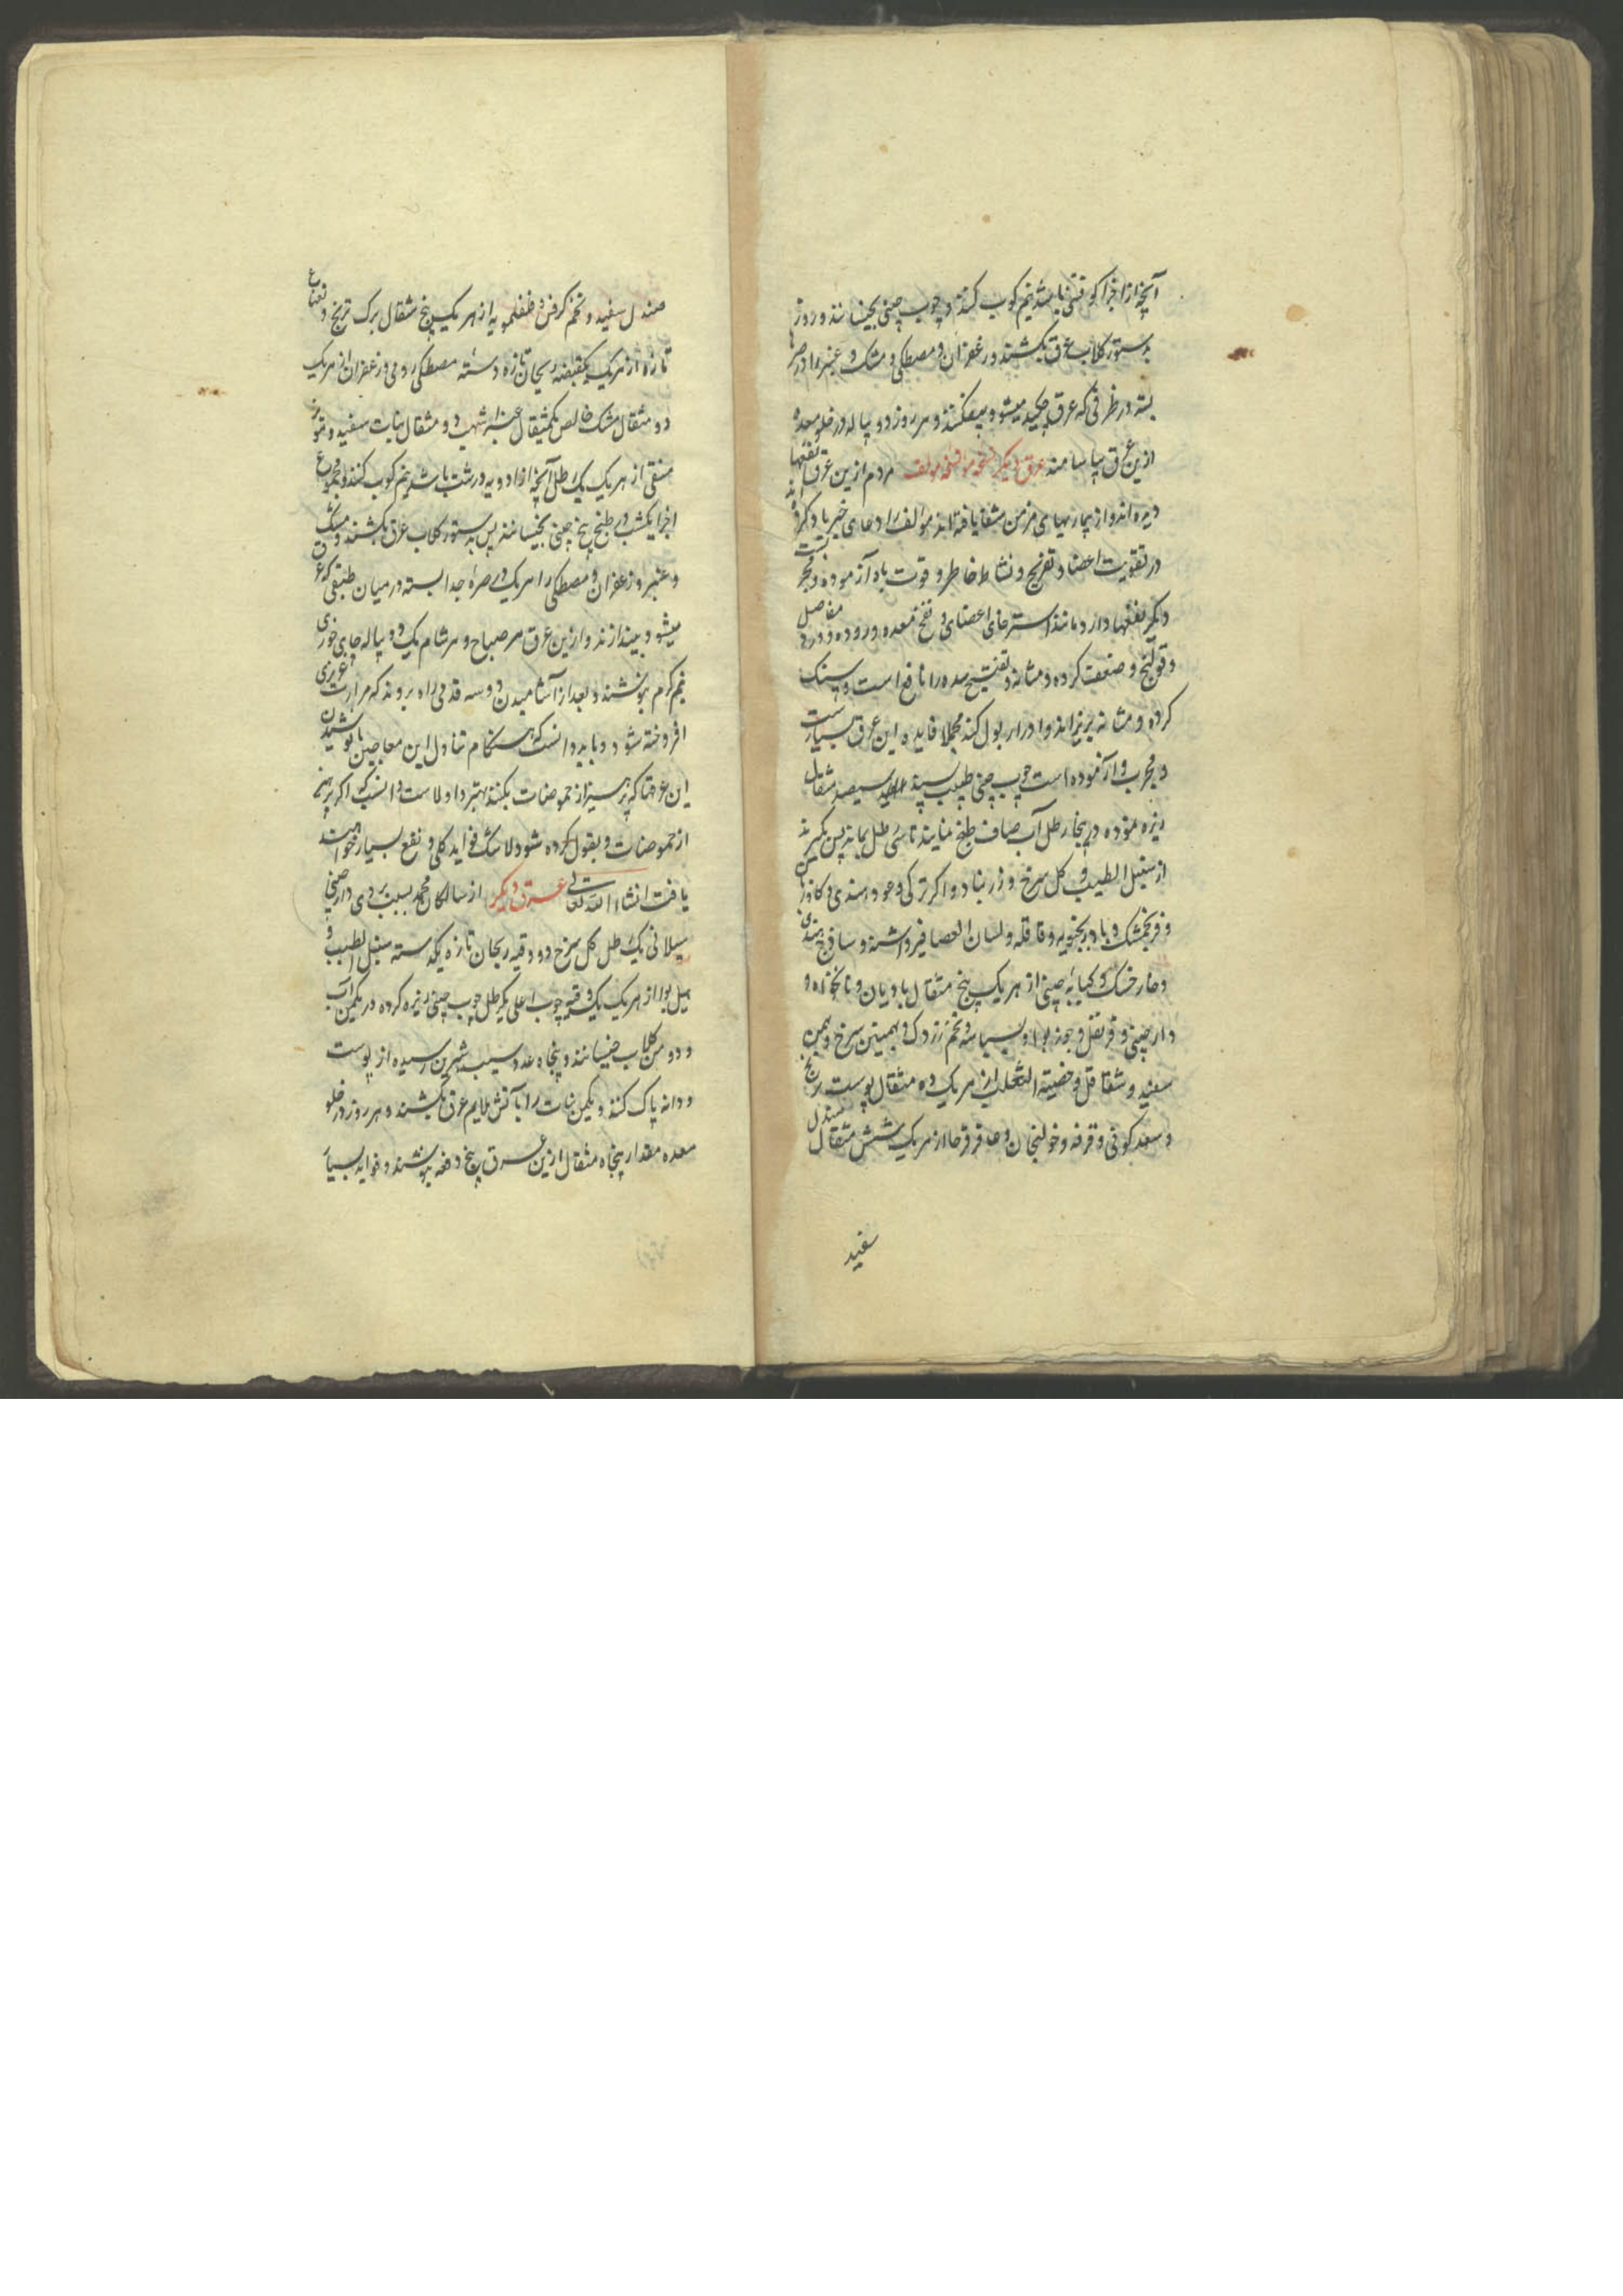 آنچه از اجزا کوفتنی باشد نیم کوب کنند و چوب چینی بخیسانند و روز
بدستور کلاب عرق بکشند و زعفران و مصطکی و مشک و عنبر را در صره
بسته در ظرفی که عرق چکیده میشود بیفکنند و هر روز دو پیاله در خلو معده
ازین عرق بیاشامند عرق دیگر نسخه مولف مردم ازین عرق نفعها
دیده اند و از بیماریهای مزمن شفا یافته اند مؤلف را دعای خیر یاد کرده اند
در تقویت اعضا و تفریح و نشاط خاطر و قوت باه آزموده و مجربست
دیگر نفعها دارد مانند استرخای اعضای و نفخ معده و روده و درد مفاصل
و قولنج و ضعف کرده و مثانه و تفتیح سده را نافع است و سنک
کرده و مثانه بریزاند و ادرار بول کند مجملا فایده این عرق بسیارست
و مجرب و آزموده است چوب چینی سیصد مثقال
ریزه نموده در چهار رطل آب صاف طبخ نمایند تا سه رطل بماند پس بگیرند
از سنبل الطیب و کل سرخ و زرنباد و اکر ترکی و عود هندی و کاوزبان
و فرنجمشک و بادرنجبویه و قاقله و لسان العصافیر و اشنه و ساذج هندی
و خارخسک و کبابه چینی از هر یک پنج مثقال بادیان و نانخواه و
دارچینی و قرنفل و جوز بوا و بسباسه و تخم زردک و بهمنین سرخ و بهمن
سفید و شقاقل و خصیة الثعلب از هر یک ده مثقال پوست ترنج
و سعد کوفی و قرفه و خولنجان و عاقرقرحا از هر یک شش مثقال صندل
سفید
صندل سفید و تخم کرفس و فلفلمویه از هر یک پنج مثقال برک ترنج و نعناع
تازه از هر یک یکقبضه ریحان تازه دسته مصطکی رومی و زعفران از هر یک
دو مثقال مشک خالص یکمثقال عنبر اشهب دو مثقال نبات سفید و مویز
منقی از هر یک یک رطل آنچه از ادویه درشت باشد نیم کوب کنند و مجموع
اجزا یکشب در طبخ بیخ چینی بخیسانند پس بدستور کلاب عرق بکشند و مشک
و عنبر و زعفران و مصطکی را هر یک در صره جدا بسته در میان طبقی که عرق
میشود بیندازند و ازین عرق هر صباح و هر شام یک دو پیاله چای خوری
نیم کرم بنوشند و بعد از آشامیدن دو سه قدمی راه بروند که حرارت غریزی
افروخته شود و باید دانست که هنکام تناول این معاجین یا نوشیدن
این عرقها که پرهیز از حموضات بکنند بهتر و اولاست و انسب که اکر پرهیز
از حموضات و بقول کرده شود لاشک فواید کلی و نفع بسیار خواهند
یافت انشاء الله تعالی عرق دیگر از سالکان محمد یزدی دارچینی
سیلانی یک رطل کل سرخ دو وقیه ریحان تازه یکدسته سنبل الطیب و
هیل بوا از هر یک یک وقیه چوب اعلی یکرطل چوب چینی ریزه کرده در یکمن آب
و دو من کلاب خیسانند و پنجاه عدد سیب شیرین رسیده از پوست
و دانه پاک کنند و یکمن نبات را بآتش ملایم عرق بکشند و هر روز در خلو
معده مقدار پنجاه مثقال ازین عرق پنج دفعه بنوشند و فواید بسیار